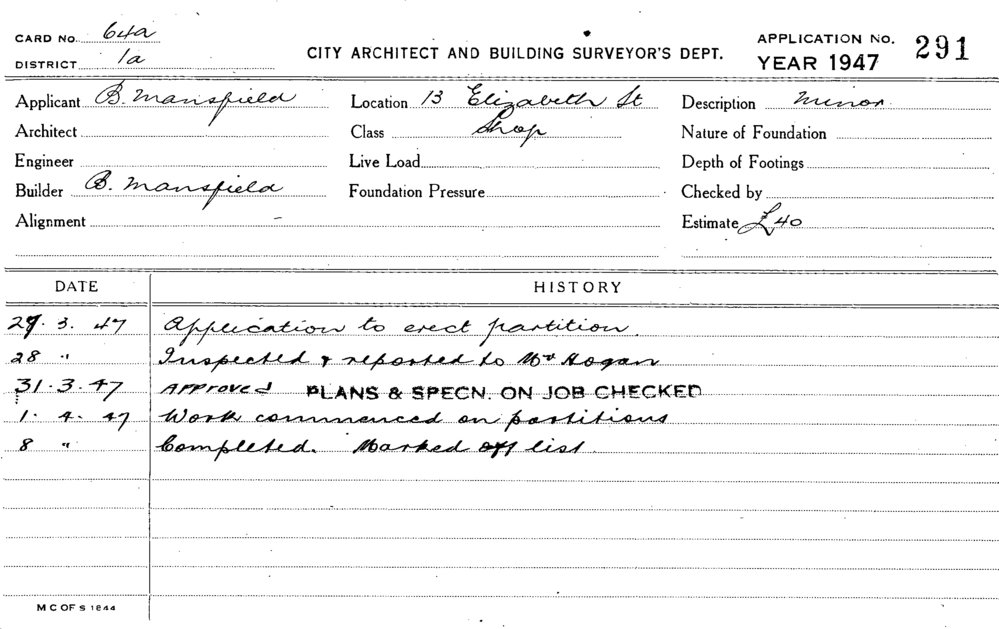 CARD No. 64a
DISTRICT 1a
CITY ARCHITECT AND BUILDING SURVEYOR'S DEPT.
APPLICATION No. 291
YEAR 1947
Applicant B. Mansfield Location 13 Elizabeth St Description Minor
Architect Class Shop Nature of Foundation
Engineer Live Load Depth of Footings
Builder B. Mansfield Foundation Pressure Checked by
Alignment - Estimate £40
DATE HISTORY
.3.47 Application to erect partition.
28 " Inspected & reported to Mr Hogan
31.3.47 APPROVED PLANS & SPECN. ON JOB CHECKED
1.4.47 Work commenced on partitions
8 " Completed. Marked off list.
M C OF S 1844